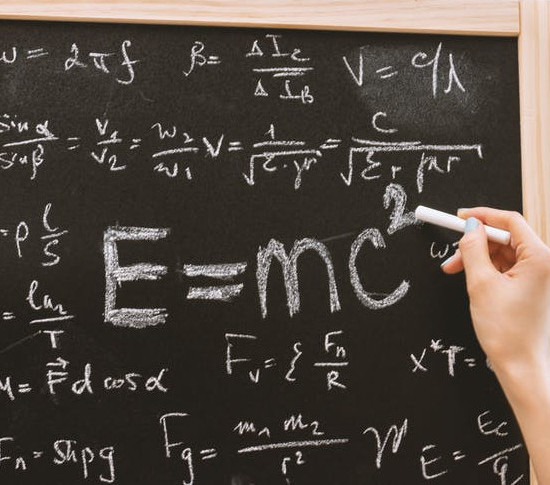 ω = 2πf β = ΔI_C/ΔI_B V = c/λ
sinα/sinβ = v₁/v₂ = n₂/n₁ V = 1/√ε·μ = c/√εr μr
= ρ l/S
E = mc² ω =
= ln₂/T
F_v = { F_n/R x*T =
= F⃗ d cosα
F_n = Shρg F_g = m₁ m₂/r² E = E_C/q